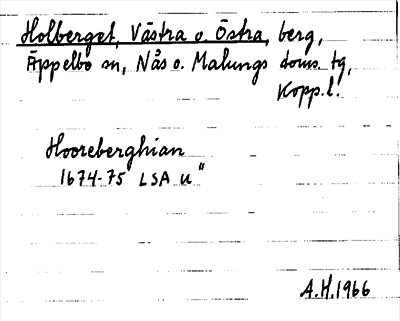 Holberget, Västra o. Östra, berg,
Äppelbo sn, Nås o. Malungs doms. tg,
Kopp.l.
Hooreberghian
1674-75 LSA u"
A.H. 1966